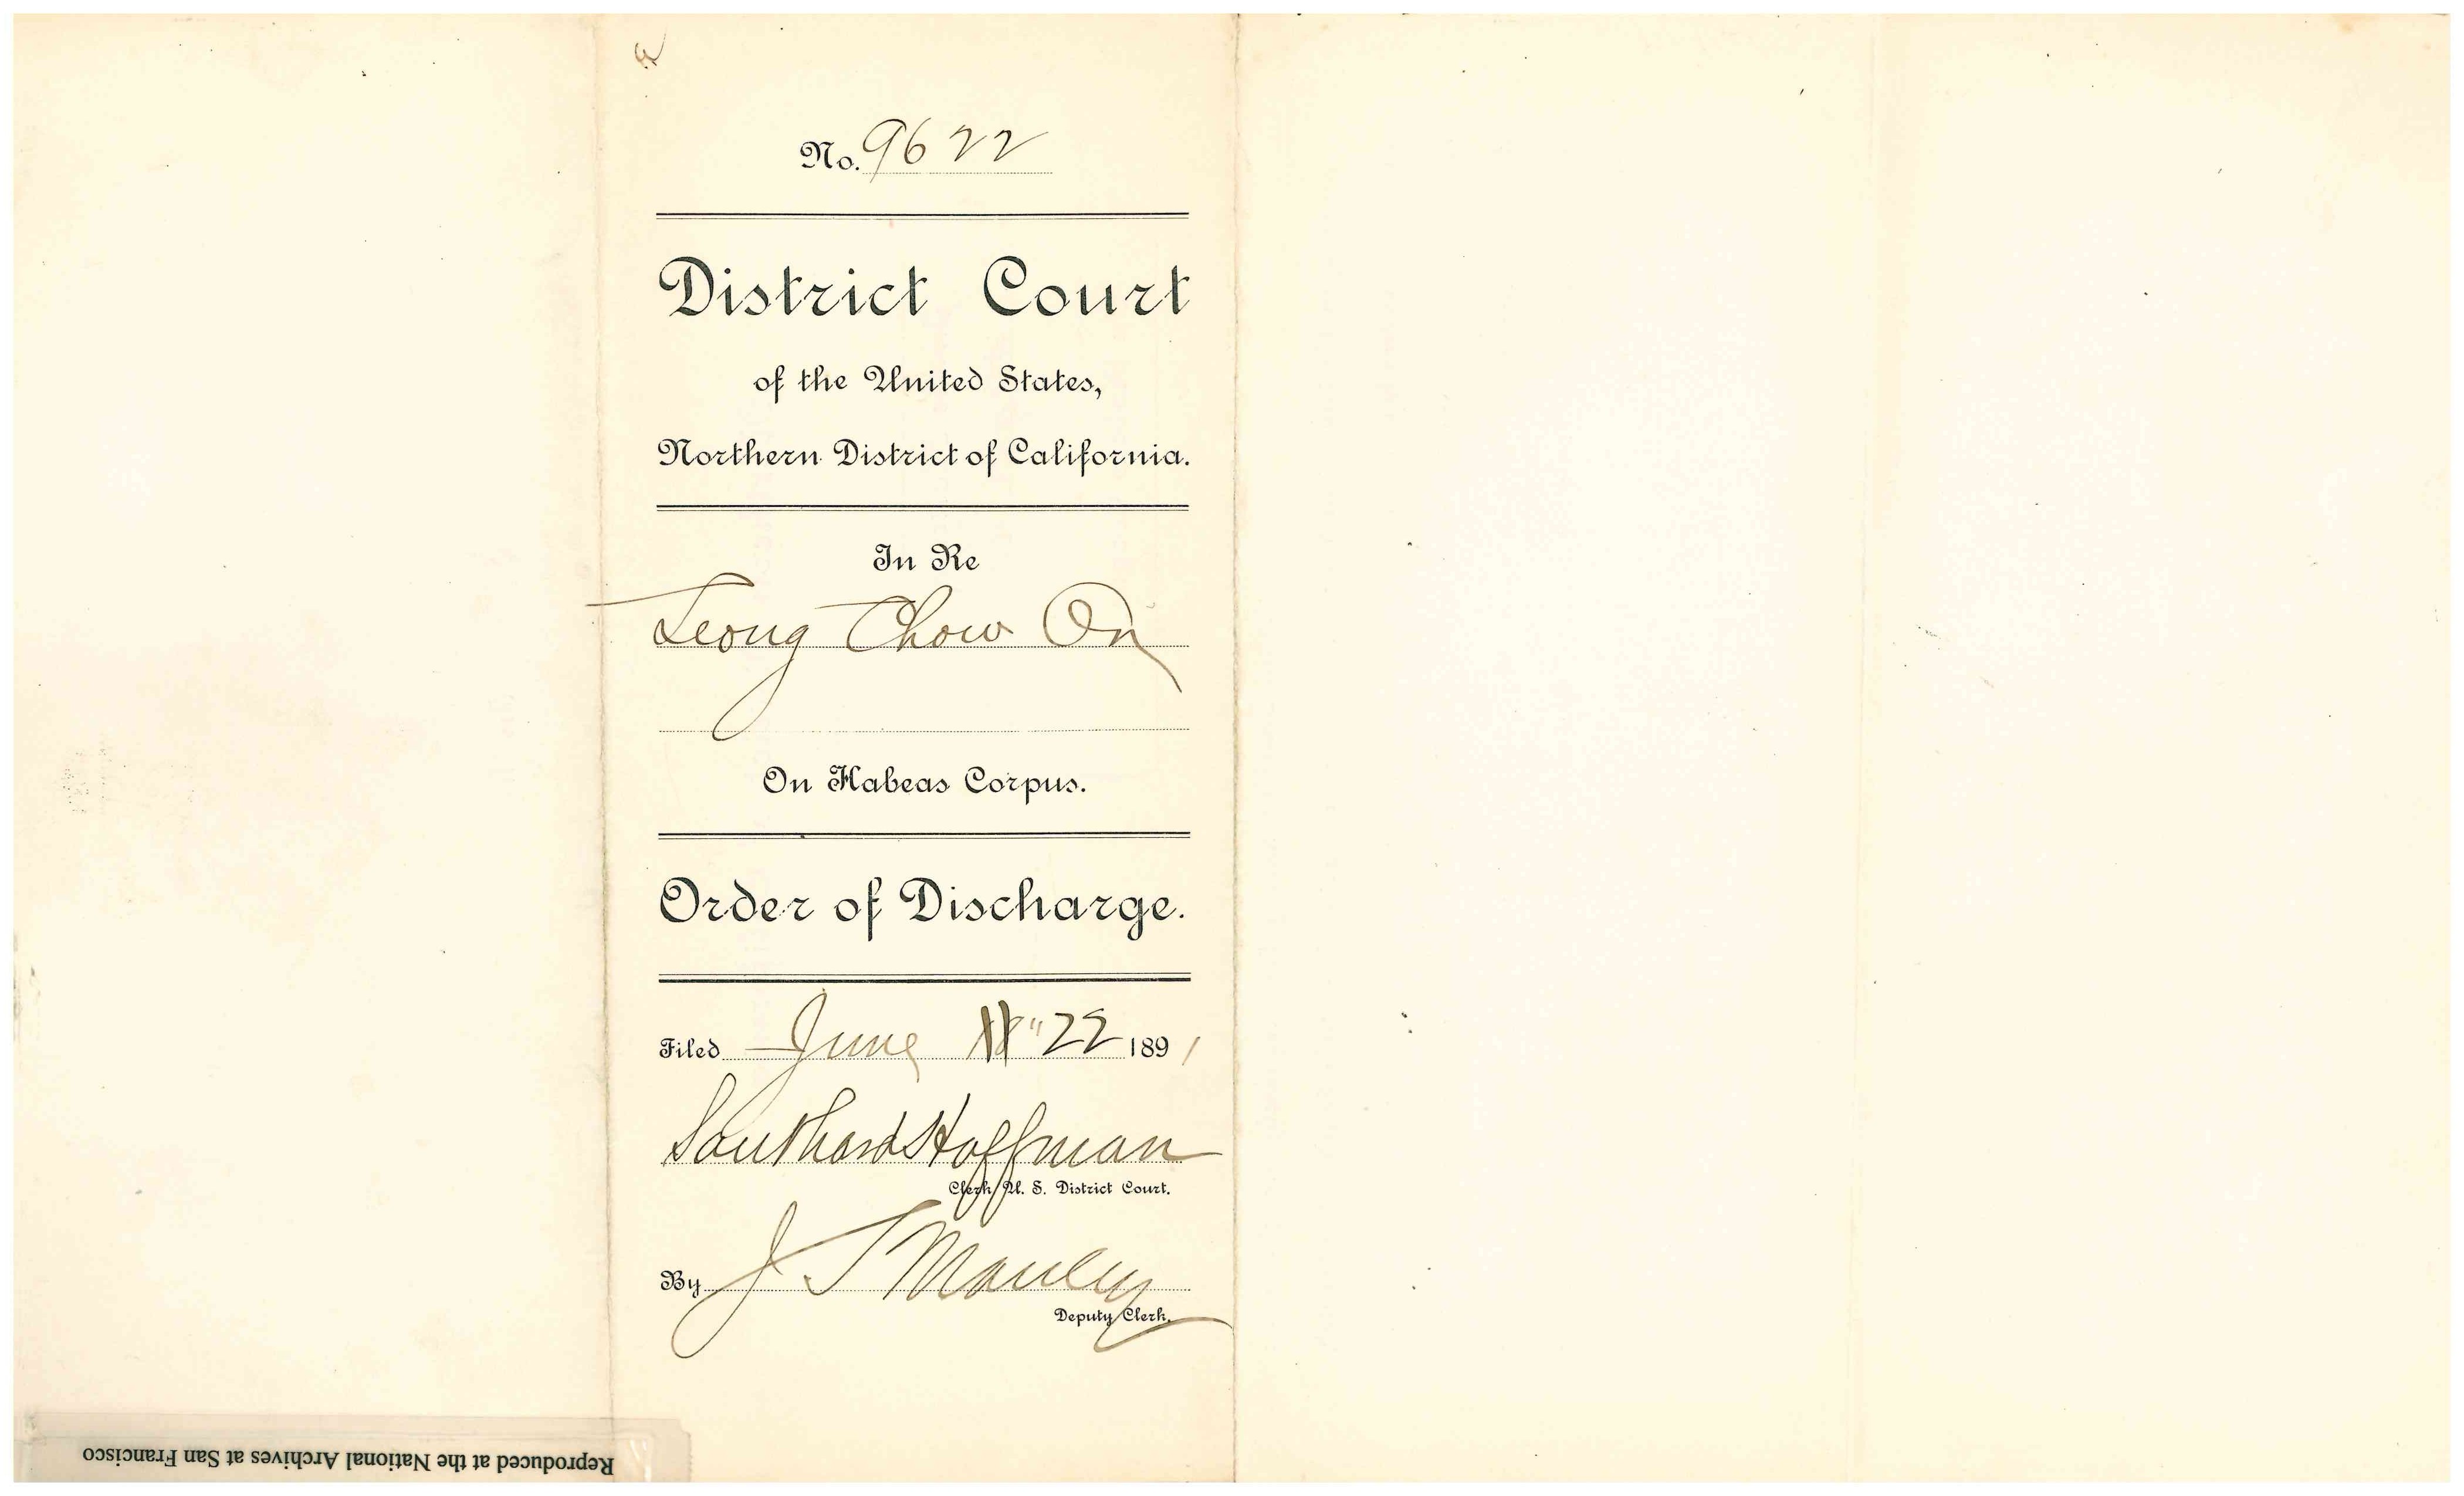 No. 9622
District Court
of the United States,
Northern District of California.
In Re
Leong Chow On
On Habeas Corpus.
Order of Discharge.
Filed June 22 1891
Southard Hoffman
Clerk U. S. District Court.
By J S Manley
Deputy Clerk.
Reproduced at the National Archives at San Francisco